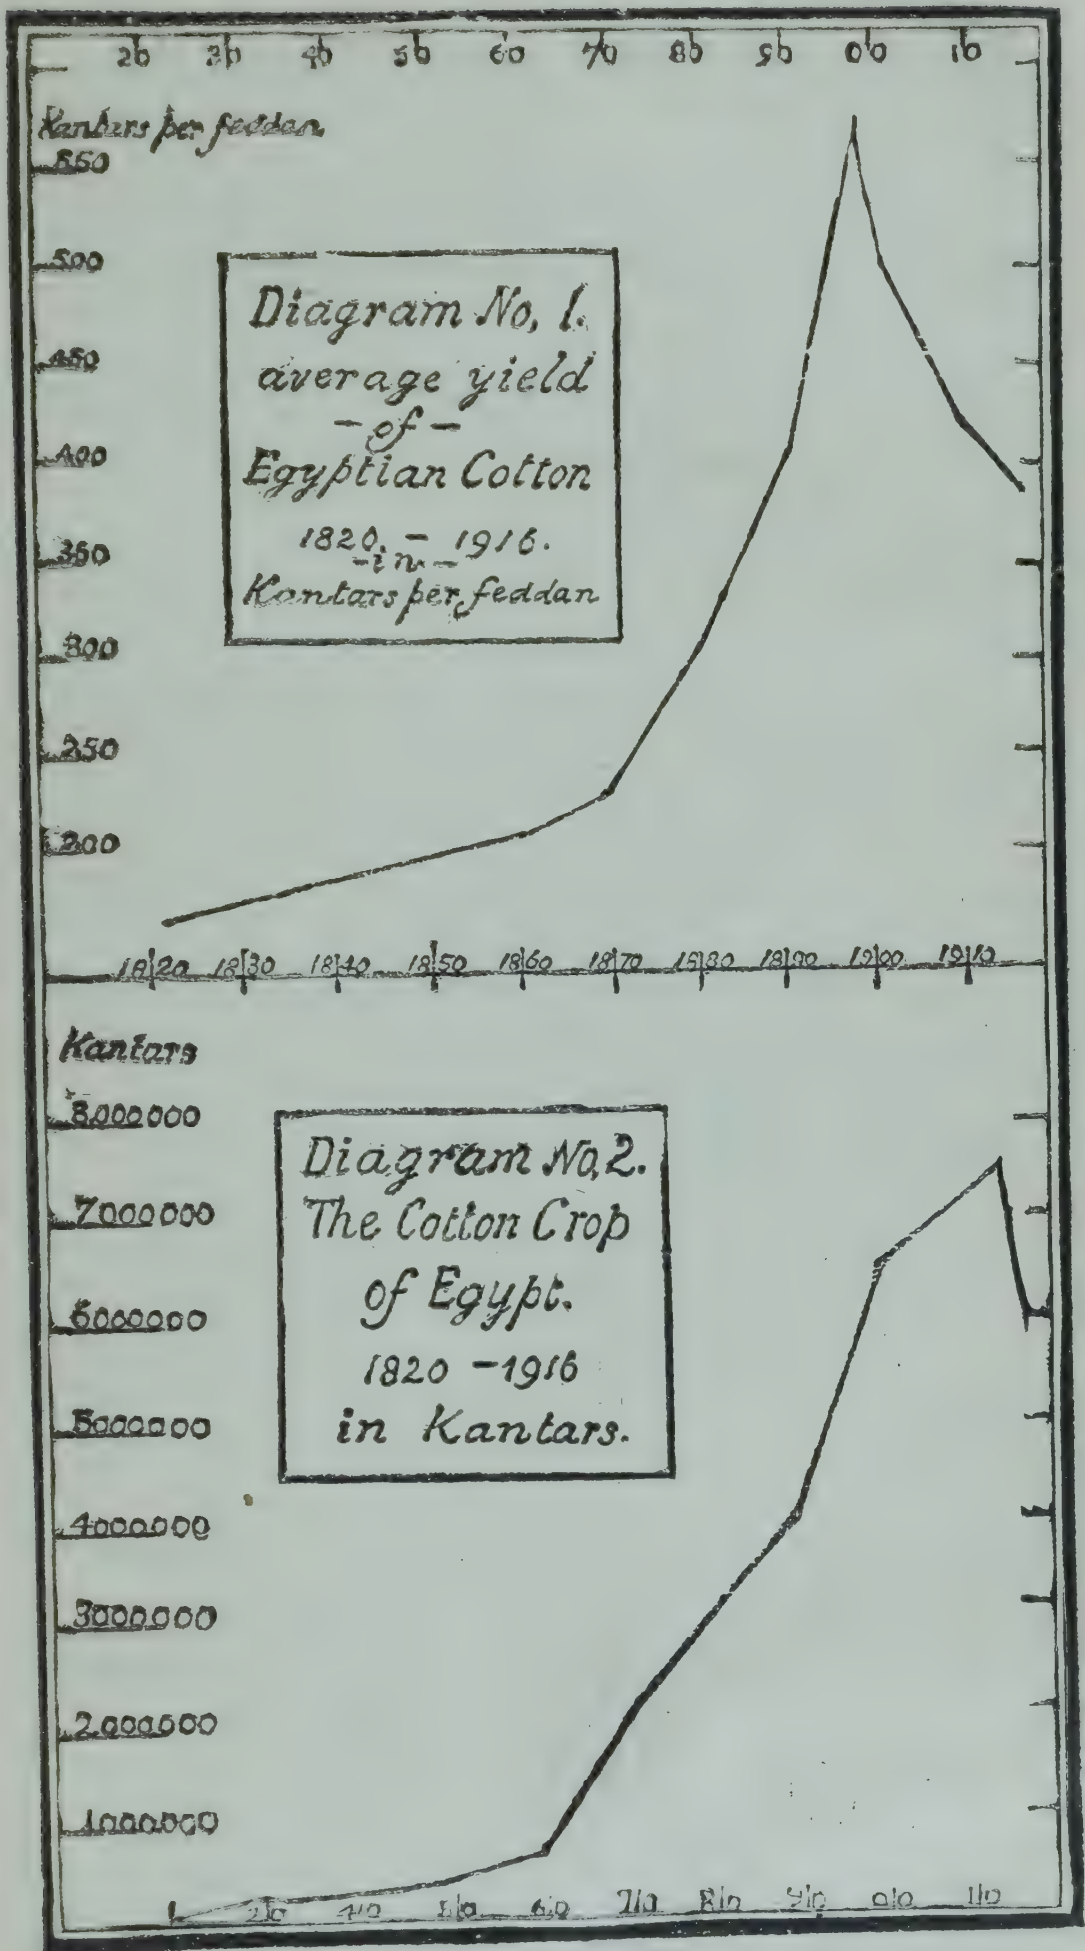 20 30 40 50 60 70 80 90 00 10
Kantars per feddan
550
500
450
400
350
300
250
200
Diagram No, 1.
average yield
- of -
Egyptian Cotton
1820 - 1916.
- in -
Kantars per feddan
1820 1830 1840 1850 1860 1870 1880 1890 1900 1910
Kantars
8000000
7000000
6000000
5000000
4000000
3000000
2000000
1000000
Diagram No, 2.
The Cotton Crop
of Egypt.
1820 - 1916
in Kantars.
20 40 50 60 70 80 90 00 10